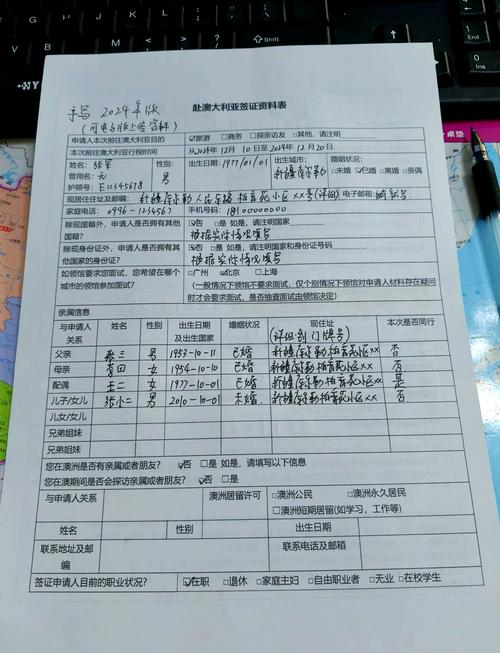 手写 2024年版
(可电子版上传资料)
赴澳大利亚签证资料表
申请人本次前往澳大利亚目的 ☑旅游 □商务 □探亲访友 □其他，请注明
本次前往澳大利亚行程时间 从2024年12月10日至2024年12月20日
姓名：张军 性别： 出生日期：1977/01/01 出生城市：新疆库尔勒 婚姻状况：
曾用名：无 □未婚 ☑已婚 □离婚 □丧偶
护照号：E12345678
现居住住址及邮编：新疆库尔勒人民东路柏青苑小区xx号(详细) 电子邮箱：
家庭电话：0996-1234567 手机号码：18100000000
除现国籍外，申请人是否拥有其他国籍？ ☑否 □是 如是，请注明国家
根据实际情况填写
除现身份证外，申请人是否拥有其他国家的身份证？ ☑否 □是 如是，请注明国家和身份证号码
根据实际情况填写
如领馆要求您面试，您希望在哪个城市的领馆参加面试？ □广州 ☑北京 □上海
(一般情况下领馆不要求面试，仅个别情况下领馆对申请人材料存在疑问时才会要求面试，是否抽查面试由领馆决定)
亲属信息
与申请人关系 姓名 性别 出生日期及出生国家 婚姻状况 现住址 (详细到门牌号) 本次是否同行
父亲 张三 男 1953-10-11 已婚 新疆库尔勒柏青苑小区xx 否
母亲 女 1954-10-10 已婚 新疆库尔勒柏青苑小区xx 否
配偶 王二 女 1977-01-01 已婚 新疆库尔勒柏青苑小区xx 是
儿子/女儿 张小二 男 2010-10-01 未婚 新疆库尔勒柏青苑小区xx 否
儿女/女儿
兄弟姐妹
兄弟姐妹
您在澳洲是否有亲属或者朋友？ ☑否 □是 如是，请填写以下信息
您在澳期间是否会探访亲属或者朋友？ ☑否 □是
与申请人关系 澳洲居留许可 □澳洲公民 □澳洲永久居民
□澳洲短期居留(如学习，工作等)
姓名 性别 出生日期
联系地址及邮编 联系电话及邮箱
签证申请人目前的职业状况？ ☑在职 □退休 □家庭主妇 □自由职业者 □无业 □在校学生